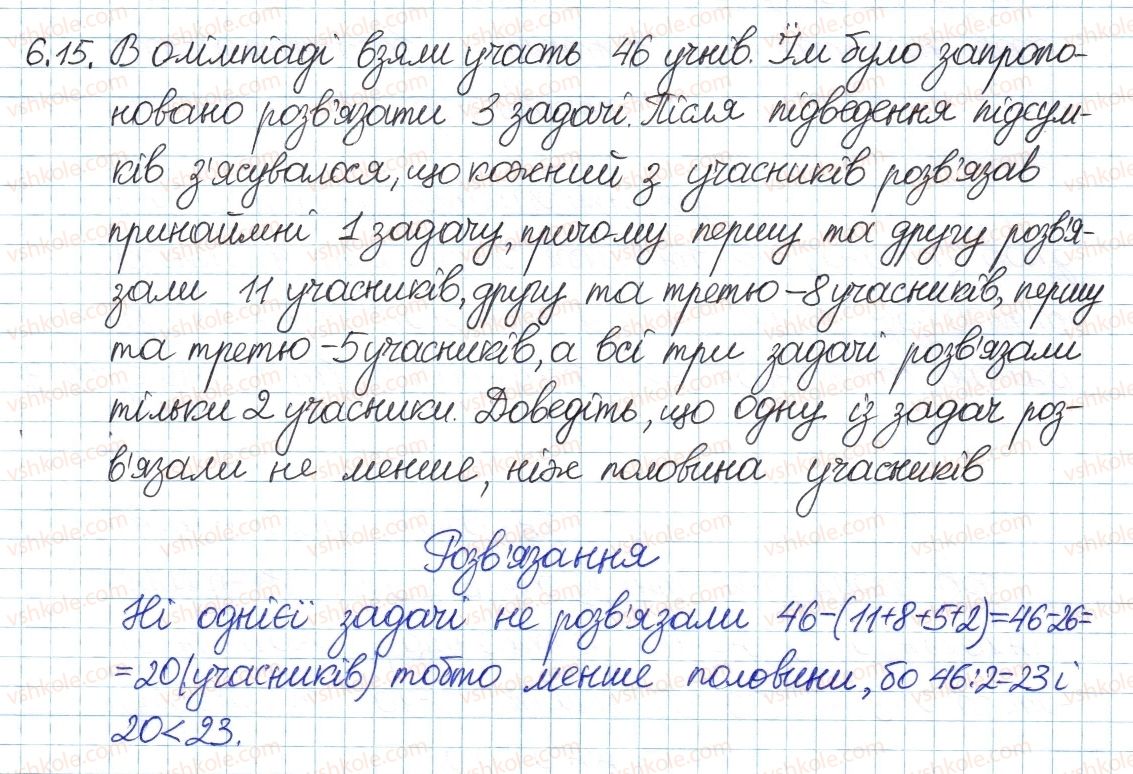 6.15. В олімпіаді взяли участь 46 учнів. Їм було запропо-
новано розв'язати 3 задачі. Після підведення підсум-
ків з'ясувалося, що кожний з учасників розв'язав
принаймні 1 задачу, причому першу та другу розв'я-
зали 11 учасників, другу та третю – 8 учасників, першу
та третю – 5 учасників, а всі три задачі розв'язали
тільки 2 учасники. Доведіть, що одну із задач роз-
в'язали не менше, ніж половина учасників
Розв'язання
Ні однієї задачі не розв'язали 46-(11+8+5+2)=46-26=
=20(учасників) тобто менше половини, бо 46:2=23 і
20<23.